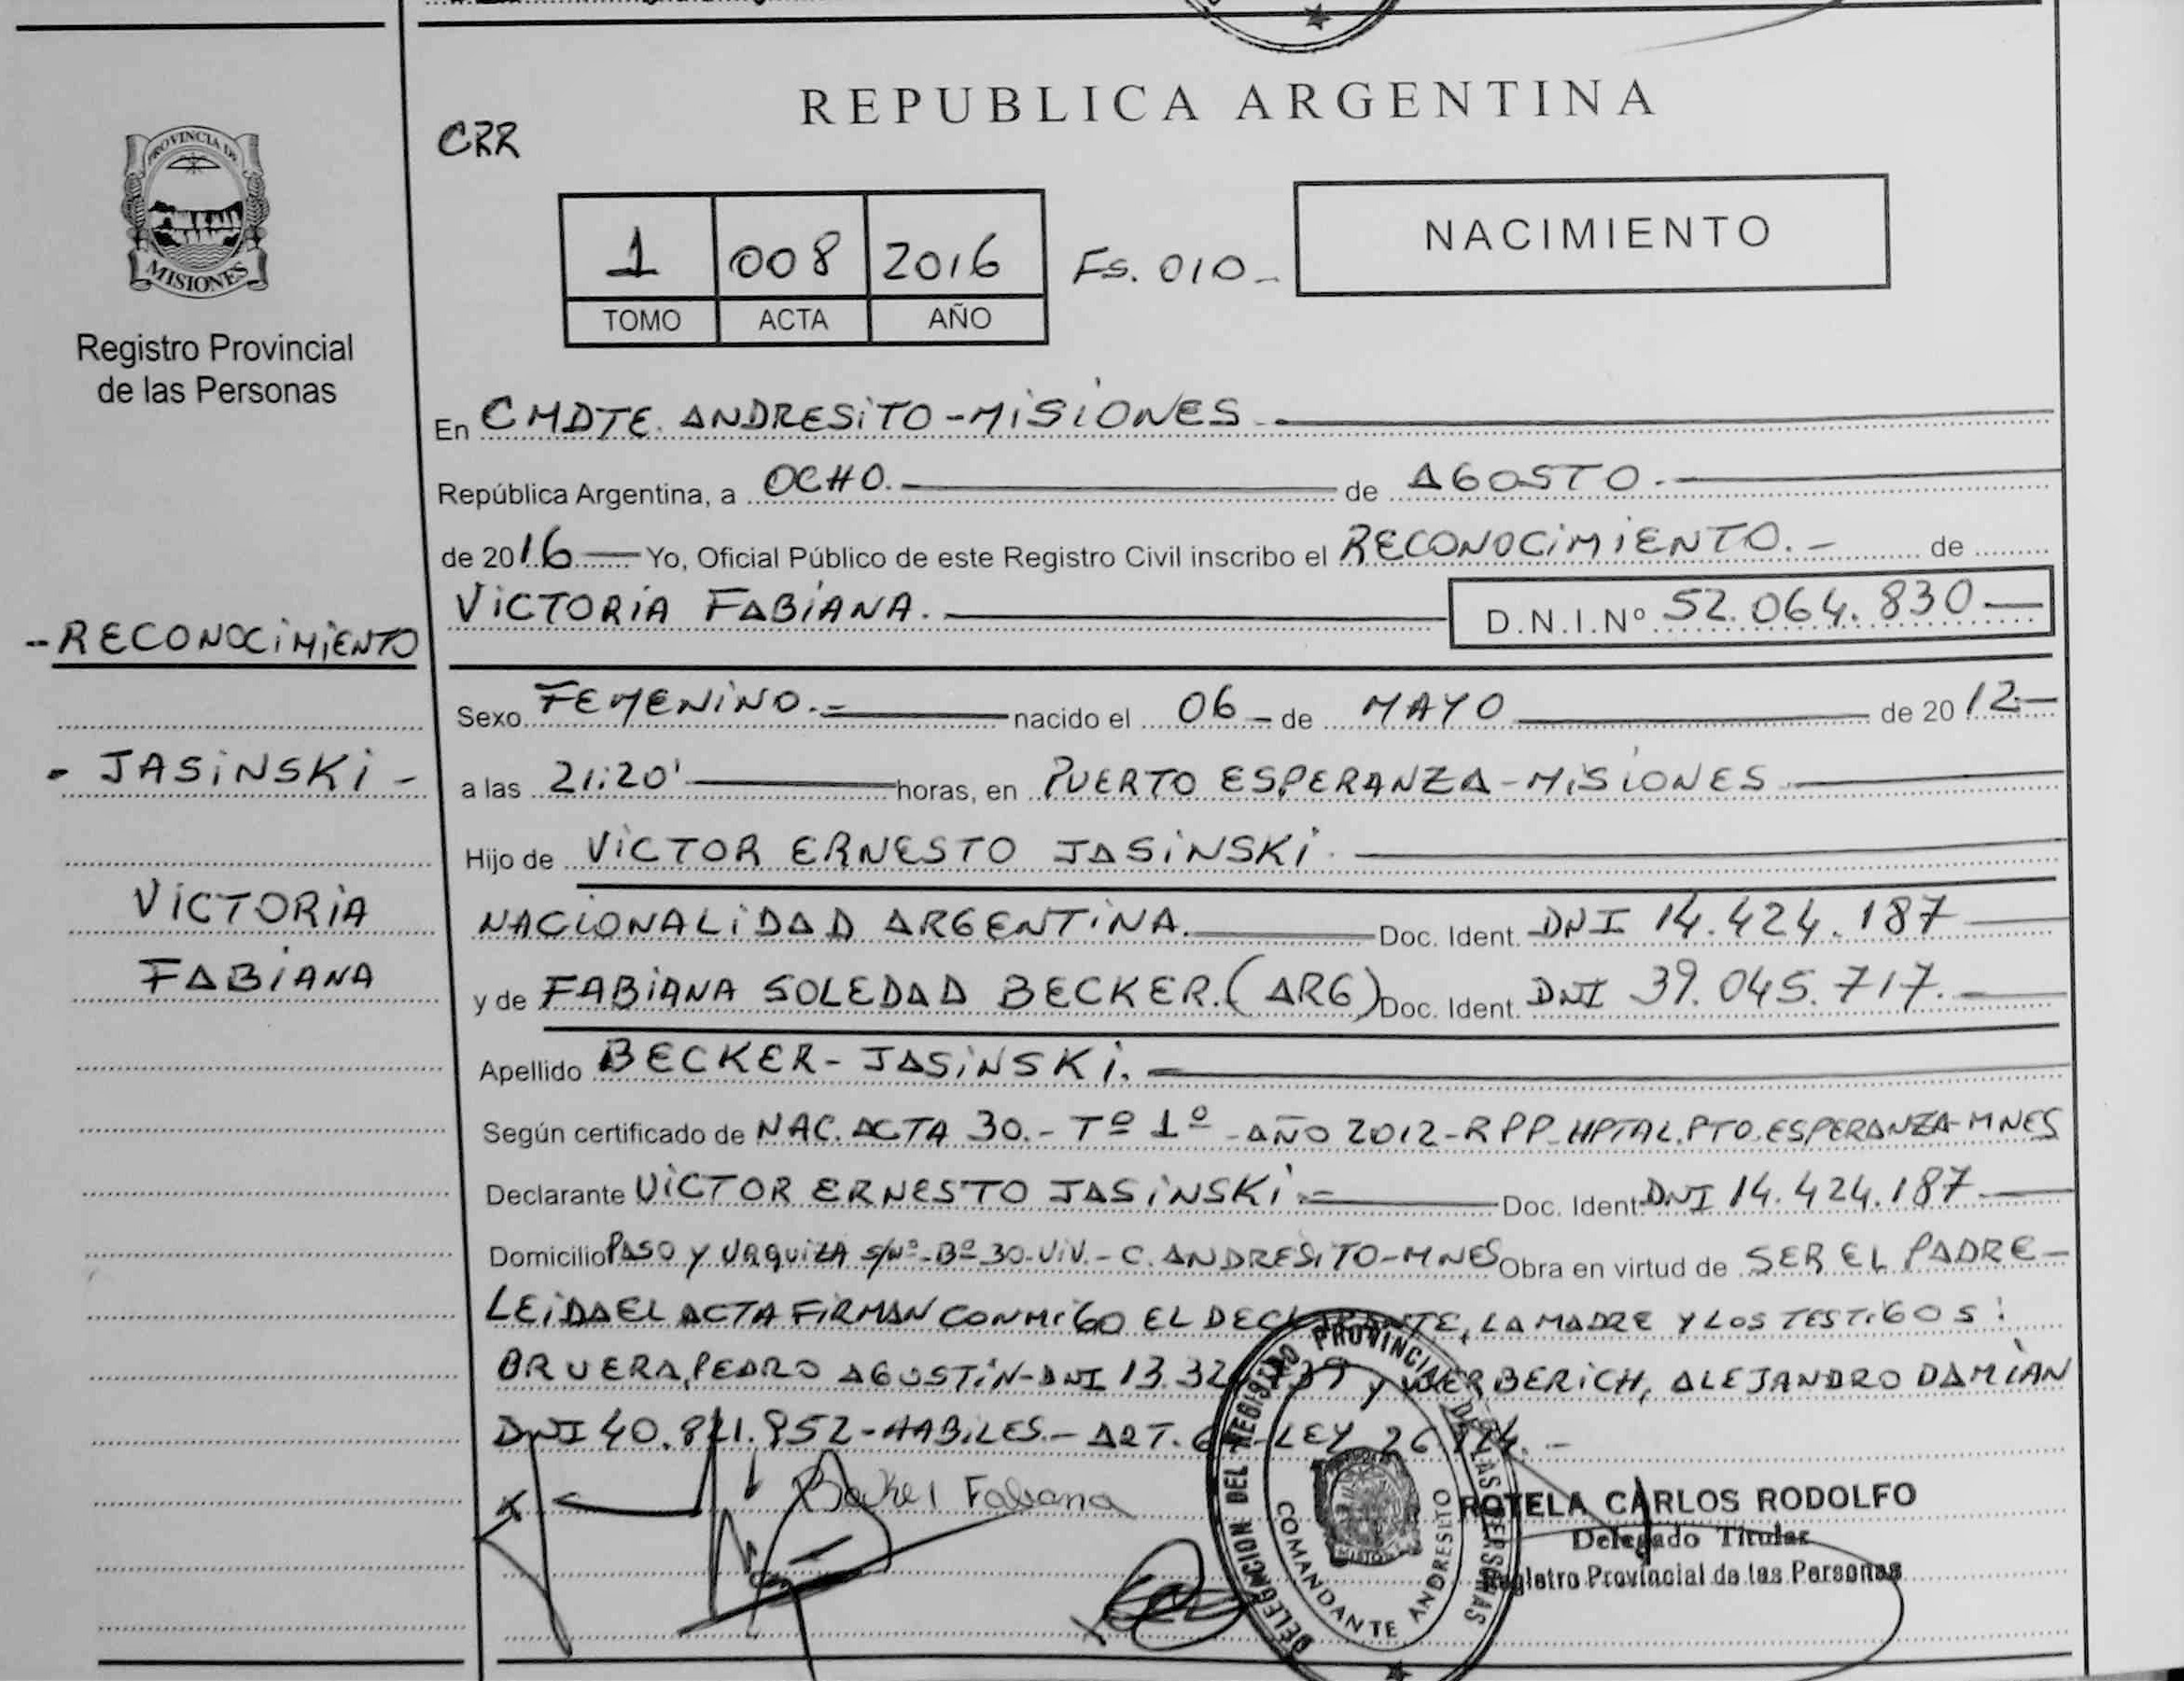 REPUBLICA ARGENTINA
CRR
PROVINCIA DE
MISIONES
Registro Provincial
de las Personas
1 008 2016 Fs. 010_
TOMO ACTA AÑO
NACIMIENTO
En CMDTE. ANDRESiTO-MiSiONES.
República Argentina, a OCHO. de AGOSTO.
de 2016 Yo, Oficial Público de este Registro Civil inscribo el RECONOCiMiENTO.- de
VICTORiA FABiANA. D.N.I.Nº 52.064.830
-RECONOCiMiENTO
- JASiNSKi -
ViCTORiA
FABiANA
Sexo FEMENiNO.- nacido el 06 de MAYO de 2012-
a las 21:20' horas, en PUERTO ESPERANZA-MiSiONES
Hijo de ViCTOR ERNESTO JASiNSKi.
NACiONALiDAD ARGENTiNA. Doc. Ident. DNI 14.424.187
y de FABiANA SOLEDAD BECKER.(ARG) Doc. Ident. DNI 39.045.717.
Apellido BECKER-JASiNSKi.
Según certificado de NAC. ACTA 30.- Tº 1º -AÑO 2012-RPP-HPTAL.PTO.ESPERANZA-MNES
Declarante ViCTOR ERNESTO JASiNSKi.- Doc. Ident. DNI 14.424.187
Domicilio PASO y URQUiZA S/Nº-Bº 30-ViV.-C.ANDRESiTO-MNES Obra en virtud de SER EL PADRE-
LEiDA EL ACTA FiRMAN CONMiGO EL DECLARANTE, LA MADRE Y LOS TESTiGOS:
BRUERA, PEDRO AGUSTiN-DNI y WERBERiCH, ALEJANDRO DAMiAN
DNI -HABiLES.-ART. LEY
Fabiana
DELEGACION DEL REGISTRO PROVINCIAL DE LAS PERSONAS
COMANDANTE ANDRESITO
ROTELA CARLOS RODOLFO
Delegado Titular
Registro Provincial de las Personas